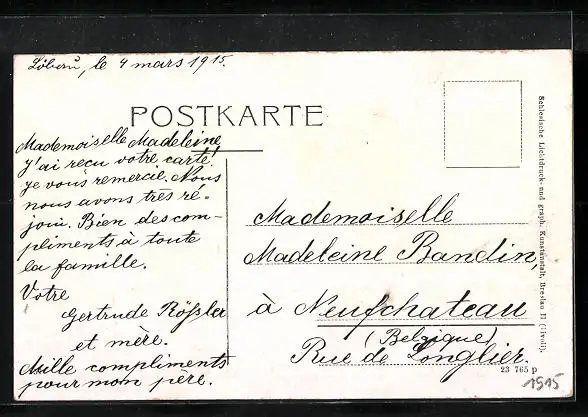 Löbau, le 4 mars 1915.
POSTKARTE
Mademoiselle Madeleine
J'ai reçu votre carte!
Je vous remercie. Nous
nous avons très ré-
joui. Bien des com-
pliments à toute
la famille.
Votre
Gertrude Rößler
et mère.
Mille compliments
pour mon père.
Mademoiselle
Madeleine Bandin,
à Neufchateau
(Belgique)
Rue de Longlier.
23 765 p
1915
Schlesische Lichtdruck- und graph. Kunstanstalt, Breslau II (Tivoli).